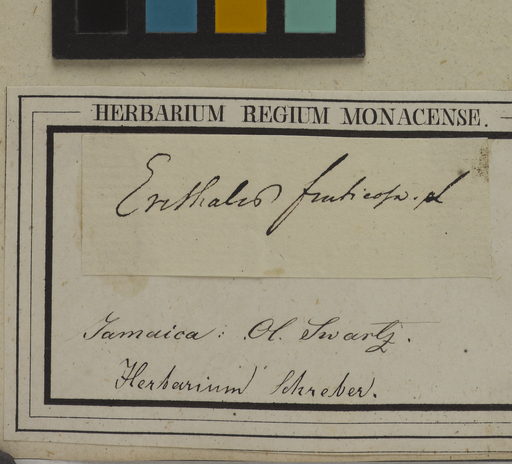 HERBARIUM REGIUM MONACENSE.
Erithalis fruticosa. L
Jamaica: Ol. Swartz.
Herbarium Schreber.